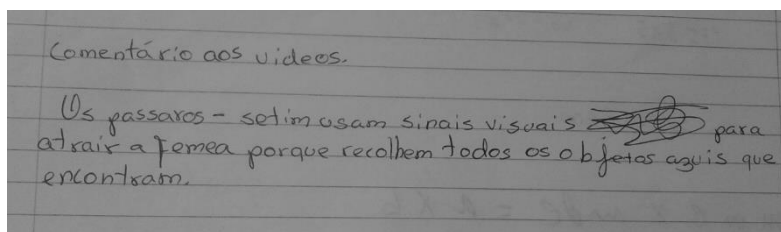 Comentário aos videos.
Os passaros - setim usam sinais visuais para
atrair a femea porque recolhem todos os objetos azuis que
encontram.